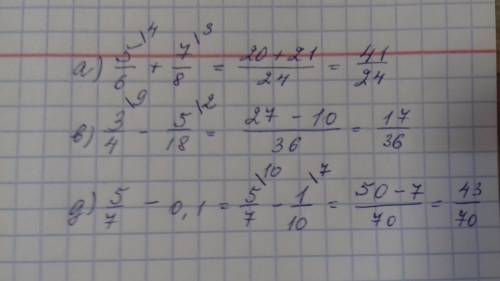 а) 5/6 \4 + 7/8 \3 = (20 + 21)/24 = 41/24
в) 3/4 \9 - 5/18 \2 = (27 - 10)/36 = 17/36
д) 5/7 - 0,1 = 5/7 \10 - 1/10 \7 = (50 - 7)/70 = 43/70